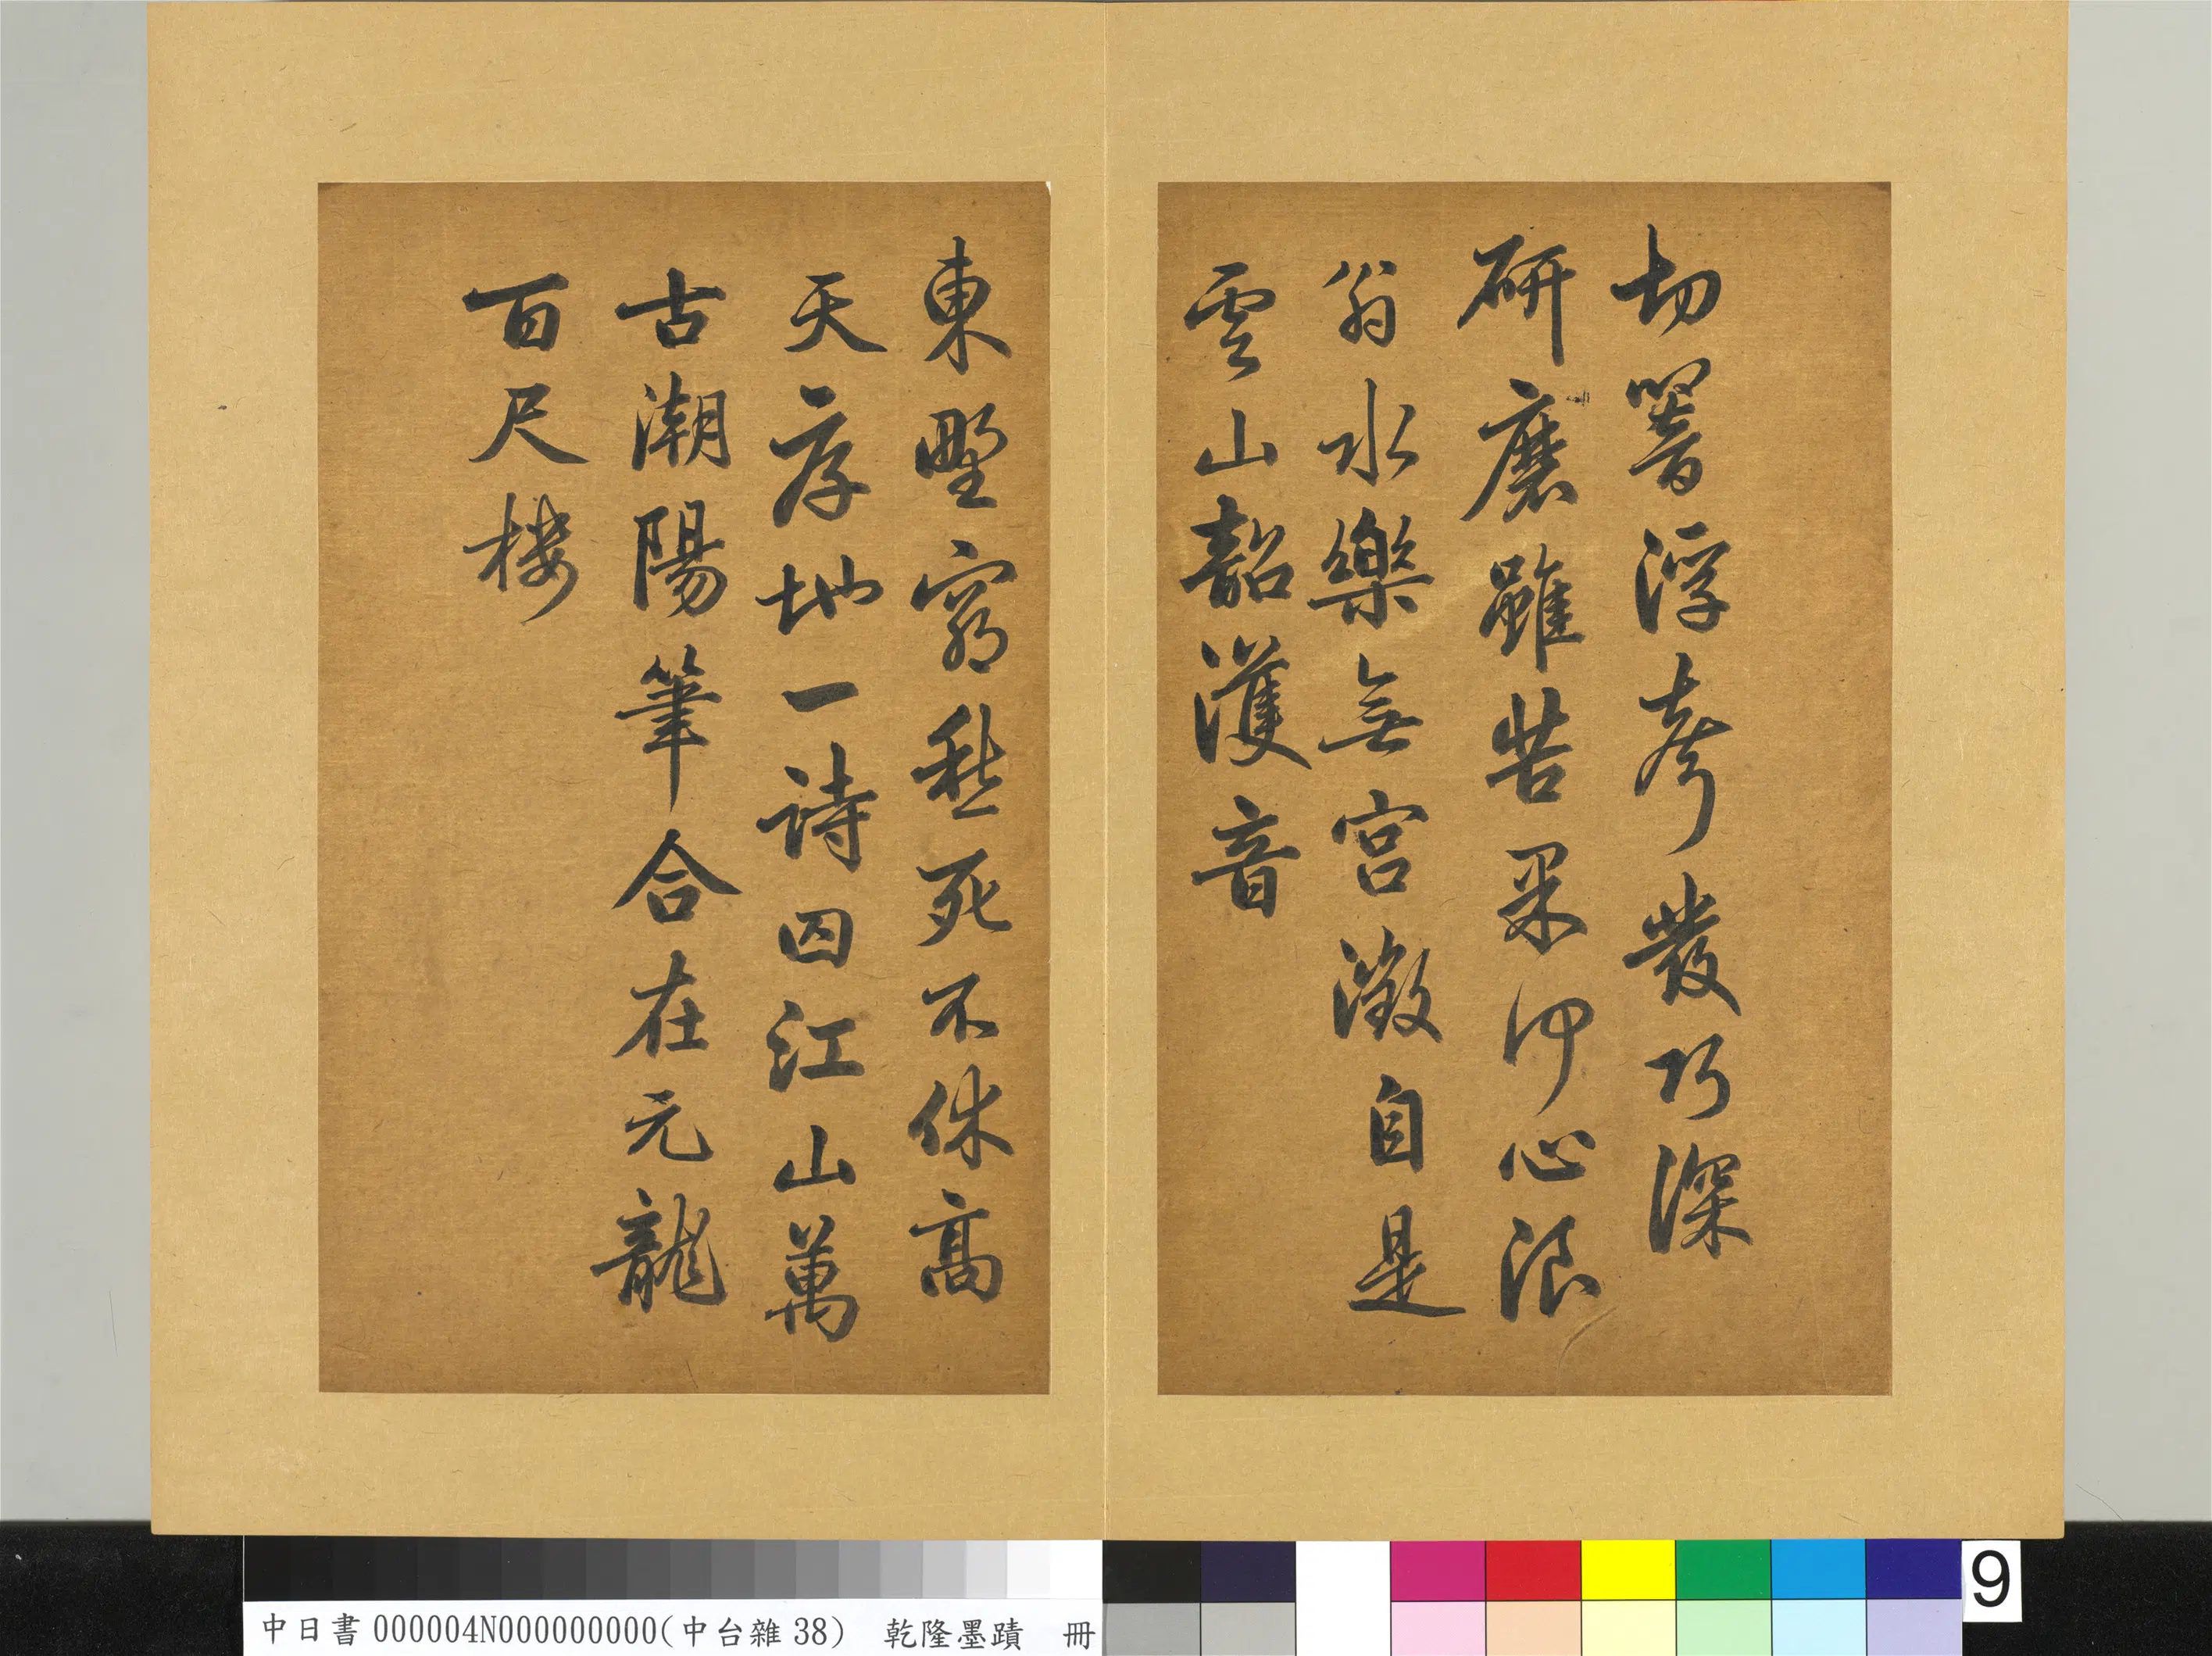 切響浮聲發巧深
研磨雖苦果何心浪
翁水樂無宮徵自是
雲山韶濩音
東野窮愁死不休高
天厚地一詩囚江山萬
古潮陽筆合在元龍
百尺樓
中日書000004N000000000(中台雜38) 乾隆墨蹟 冊
9